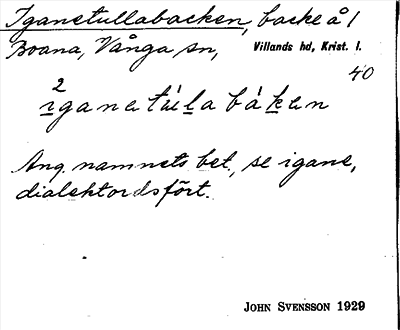 Iganetullabacken, backe å 1
Boana, Vånga sn, Villands hd, Krist. l.
40
2
i̱ganetúḻa báḵen
Ang. namnets bet., se igane,
dialektordsfört.
JOHN SVENSSON 1929